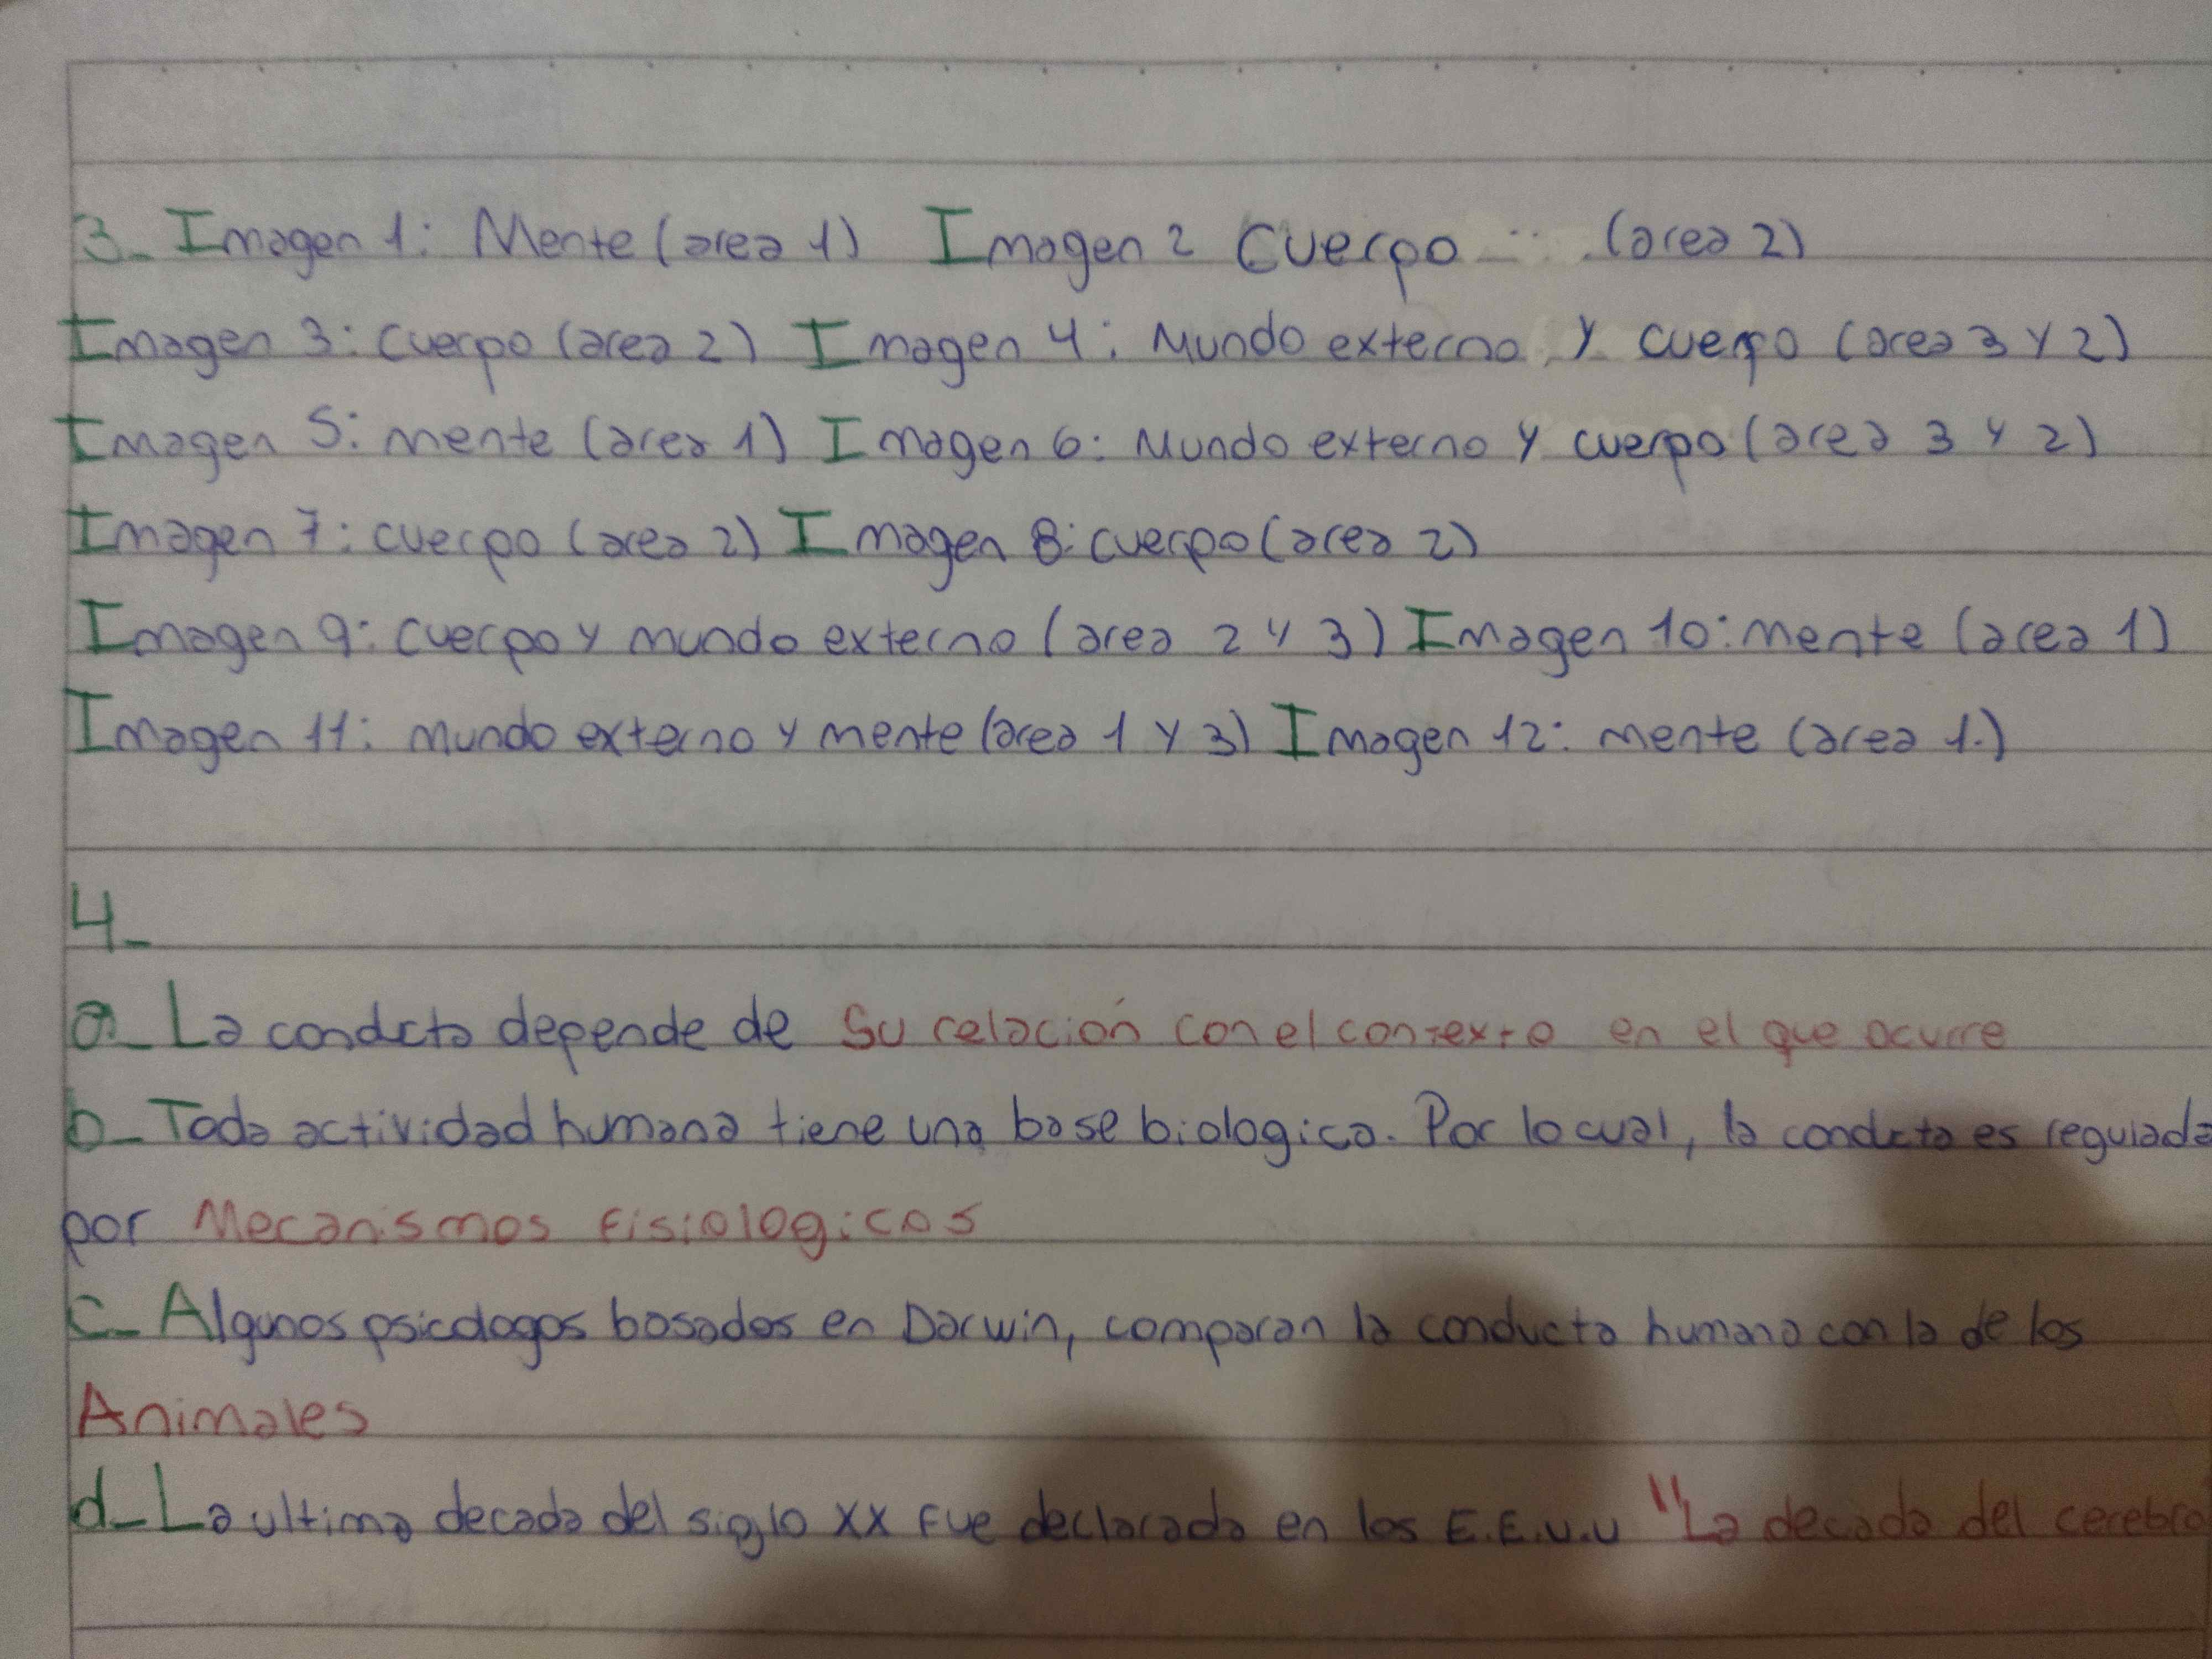 3_ Imagen 1: Mente (area 1) Imagen 2 Cuerpo (area 2)
Imagen 3: cuerpo (area 2) Imagen 4: Mundo externo y cuerpo (area 3 y 2)
Imagen 5: mente (area 1) Imagen 6: Mundo externo y cuerpo (area 3 y 2)
Imagen 7: cuerpo (area 2) Imagen 8: cuerpo (area 2)
Imagen 9: cuerpo y mundo externo (area 2 y 3) Imagen 10: mente (area 1)
Imagen 11: mundo externo y mente (area 1 y 3) Imagen 12: mente (area 1.)
4_
a_ La condcta depende de su relación con el contexto en el que ocurre
b_ Toda actividad humana tiene una base biologica. Por lo cual, la condcta es regulada
por Mecanismos Fisiologicos
c_ Algunos psicologos basados en Darwin, comparan la conducta humana con la de los
Animales
d_ La ultima decada del siglo XX Fue declarada en los E.E.U.U "La decada del cerebro